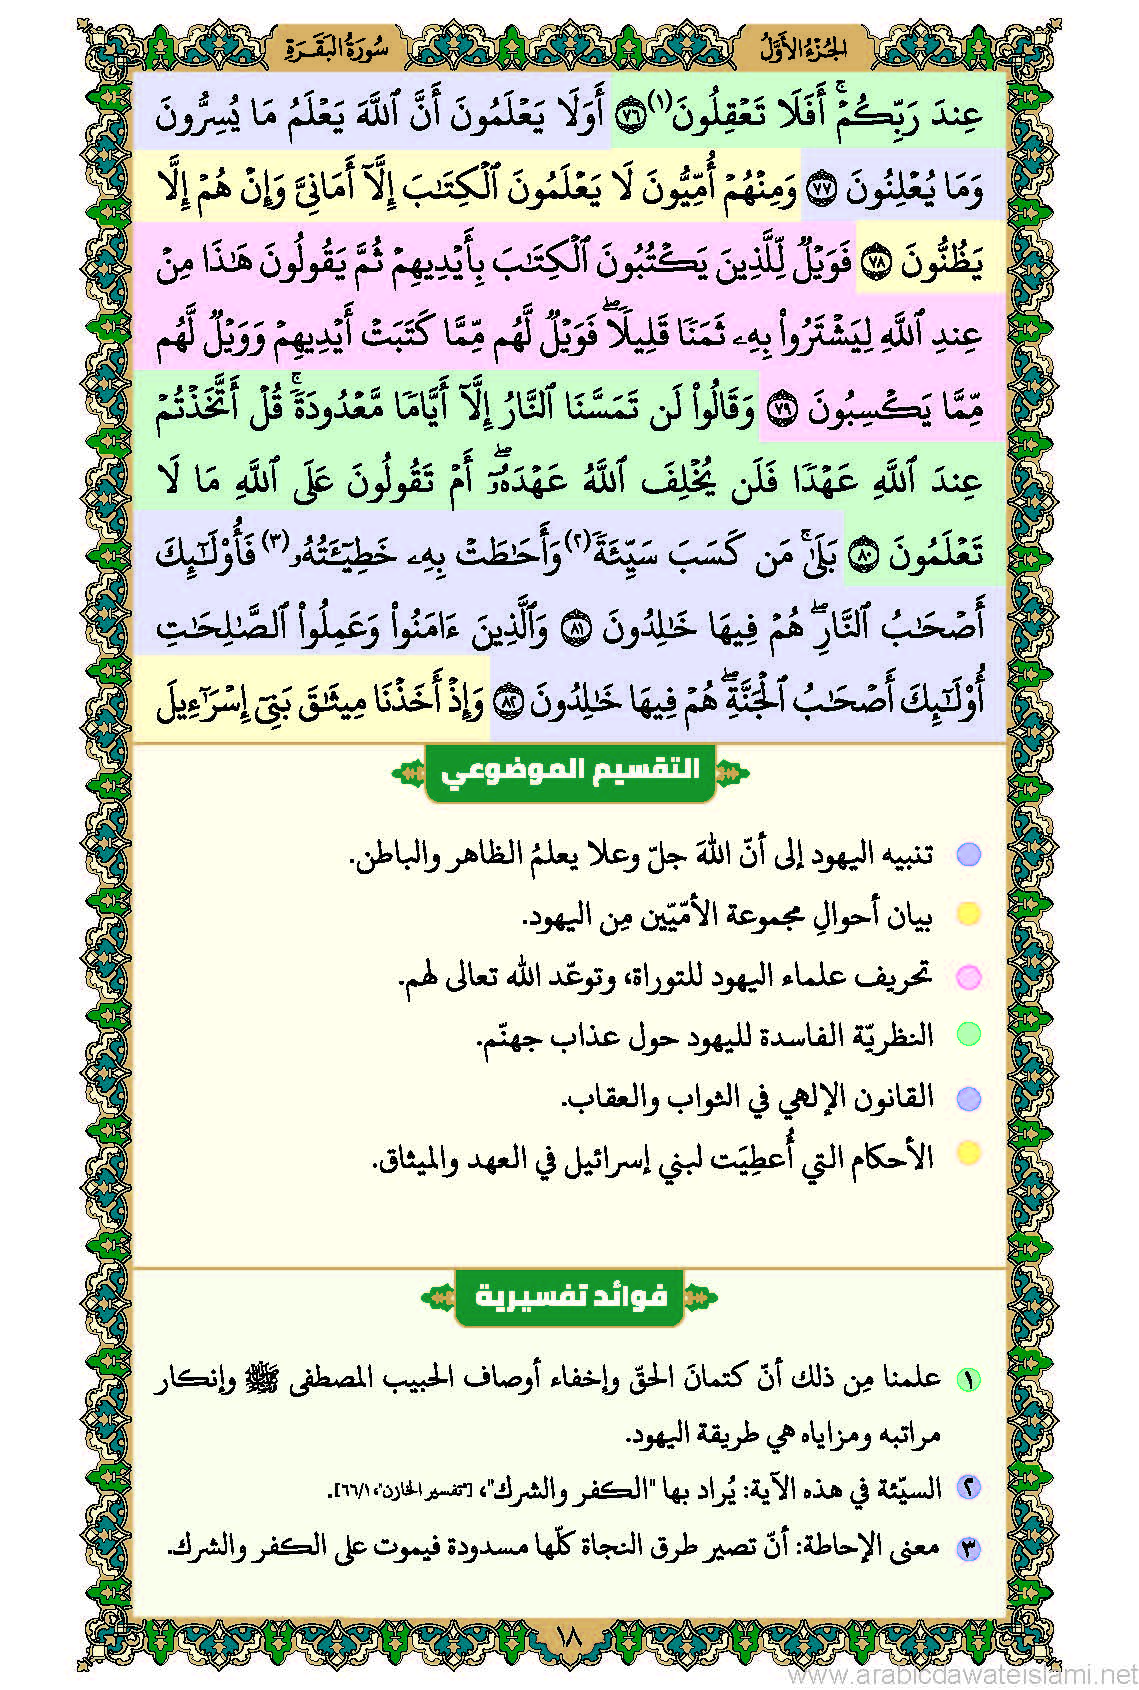 الجُزْءُ الأَوَّلُ
سُورَةُ البَقَرَةِ
عِندَ رَبِّكُمۡۚ أَفَلَا تَعۡقِلُونَ(١) ٧٦ أَوَلَا يَعۡلَمُونَ أَنَّ ٱللَّهَ يَعۡلَمُ مَا يُسِرُّونَ
وَمَا يُعۡلِنُونَ ٧٧ وَمِنۡهُمۡ أُمِّيُّونَ لَا يَعۡلَمُونَ ٱلۡكِتَٰبَ إِلَّآ أَمَانِيَّ وَإِنۡ هُمۡ إِلَّا
يَظُنُّونَ ٧٨ فَوَيۡلٞ لِّلَّذِينَ يَكۡتُبُونَ ٱلۡكِتَٰبَ بِأَيۡدِيهِمۡ ثُمَّ يَقُولُونَ هَٰذَا مِنۡ
عِندِ ٱللَّهِ لِيَشۡتَرُواْ بِهِۦ ثَمَنٗا قَلِيلٗاۖ فَوَيۡلٞ لَّهُم مِّمَّا كَتَبَتۡ أَيۡدِيهِمۡ وَوَيۡلٞ لَّهُم
مِّمَّا يَكۡسِبُونَ ٧٩ وَقَالُواْ لَن تَمَسَّنَا ٱلنَّارُ إِلَّآ أَيَّامٗا مَّعۡدُودَةٗۚ قُلۡ أَتَّخَذۡتُمۡ
عِندَ ٱللَّهِ عَهۡدٗا فَلَن يُخۡلِفَ ٱللَّهُ عَهۡدَهُۥٓۖ أَمۡ تَقُولُونَ عَلَى ٱللَّهِ مَا لَا
تَعۡلَمُونَ ٨٠ بَلَىٰۚ مَن كَسَبَ سَيِّئَةٗ(٢) وَأَحَٰطَتۡ بِهِۦ خَطِيٓـَٔتُهُۥ(٣) فَأُوْلَٰٓئِكَ
أَصۡحَٰبُ ٱلنَّارِۖ هُمۡ فِيهَا خَٰلِدُونَ ٨١ وَٱلَّذِينَ ءَامَنُواْ وَعَمِلُواْ ٱلصَّٰلِحَٰتِ
أُوْلَٰٓئِكَ أَصۡحَٰبُ ٱلۡجَنَّةِۖ هُمۡ فِيهَا خَٰلِدُونَ ٨٢ وَإِذۡ أَخَذۡنَا مِيثَٰقَ بَنِيٓ إِسۡرَٰٓءِيلَ
التقسيم الموضوعي
تنبيه اليهود إلى أنّ اللهَ جلّ وعلا يعلمُ الظاهر والباطن.
بيان أحوالِ مجموعة الأمّيّين مِن اليهود.
تحريف علماء اليهود للتوراة، وتوعّد الله تعالى لهم.
النظريّة الفاسدة لليهود حول عذاب جهنّم.
القانون الإلهي في الثواب والعقاب.
الأحكام التي أُعطِيَت لبني إسرائيل في العهد والميثاق.
فوائد تفسيرية
١ علمنا مِن ذلك أنّ كتمانَ الحقّ وإخفاء أوصاف الحبيب المصطفى ﷺ وإنكار
مراتبه ومزاياه هي طريقة اليهود.
٢ السيّئة في هذه الآية: يُراد بها "الكفر والشرك"، ["تفسير الخازن"، ٦٦/١].
٣ معنى الإحاطة: أنّ تصير طرق النجاة كلّها مسدودة فيموت على الكفر والشرك.
١٨
www.arabicdawateislami.net